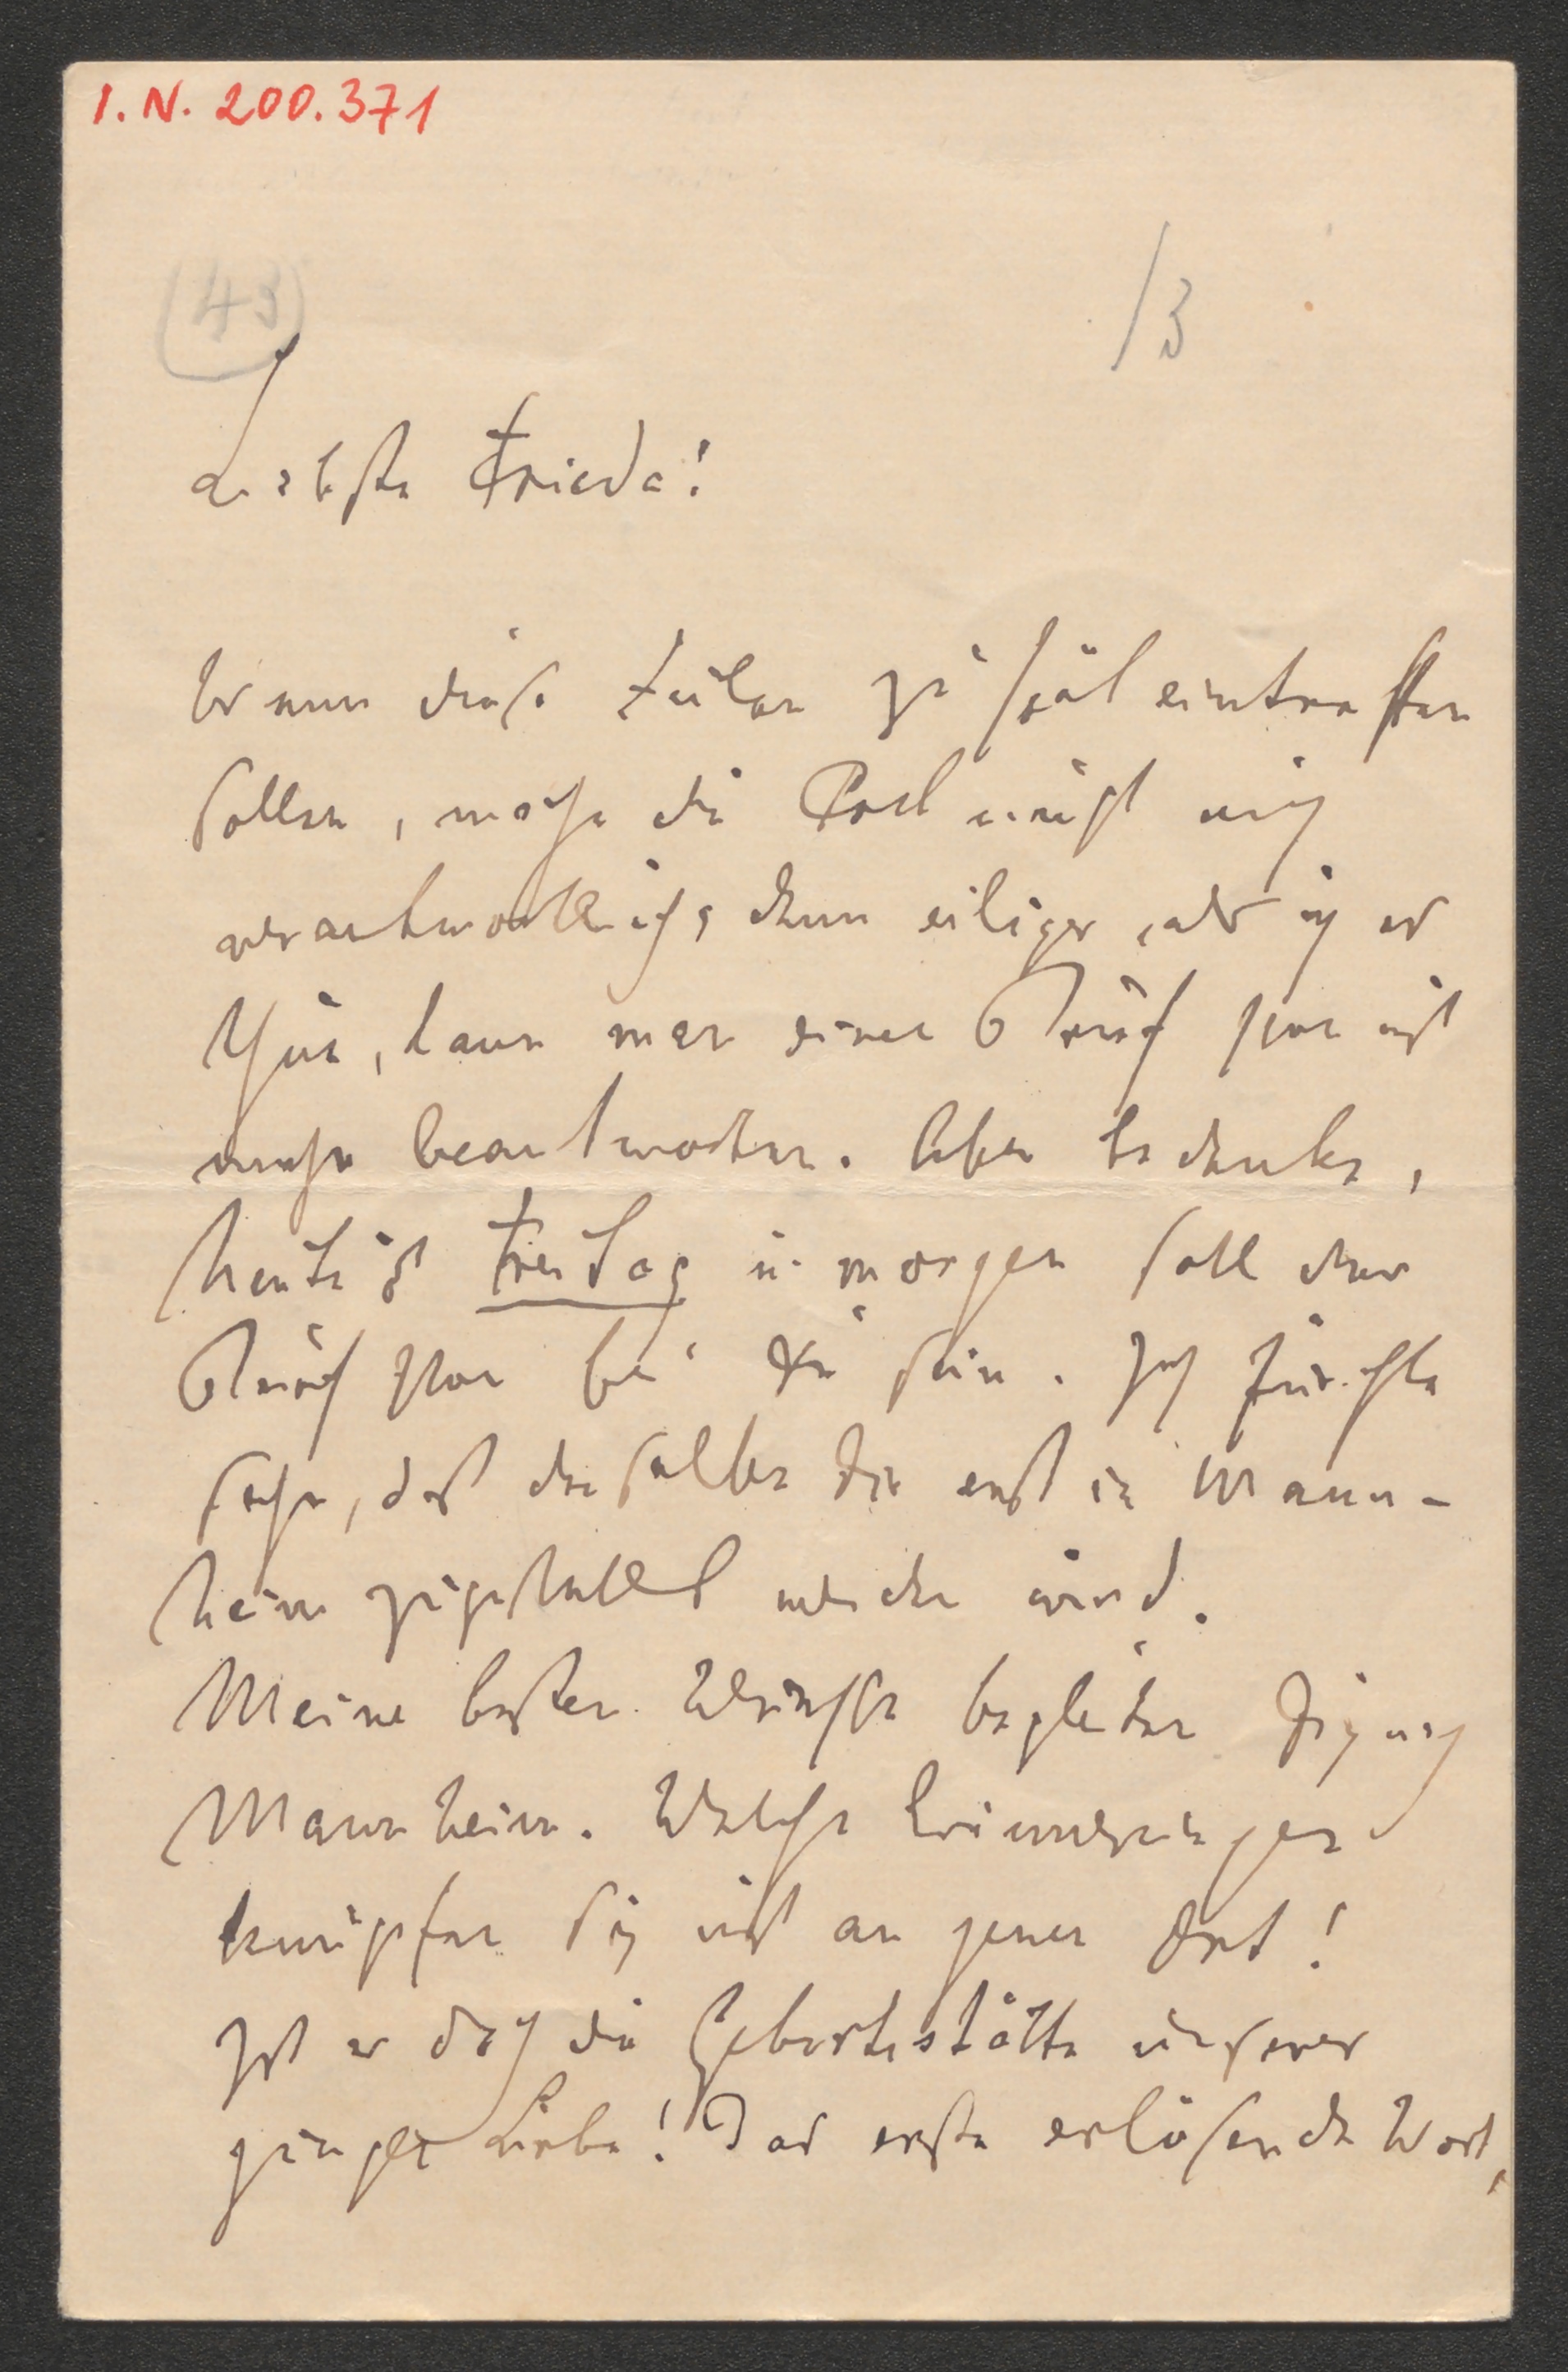 I. N. 200.371
(43)
/3
Liebste Frieda!
Wenn diese Zeilen zu spät eintreffen
sollten, mache die Post nicht mich
verantwortlich, denn eiliger, als ich es
thue, kann man einen Brief schon nicht
mehr beantworten. Aber bedenke,
heute ist Freitag u. morgen soll der
Brief schon bei Dir sein. Ich fürchte
sehr, daß derselbe Dir erst in Mann-
heim zugestellt werden wird.
Meine besten Wünsche begleiten Dich nach
Mannheim. Welche Erinnerungen
knüpfen sich nicht an jenen Ort!
Ist er doch die Geburtsstätte unserer
jungen Liebe! Das erste erlösende Wort,